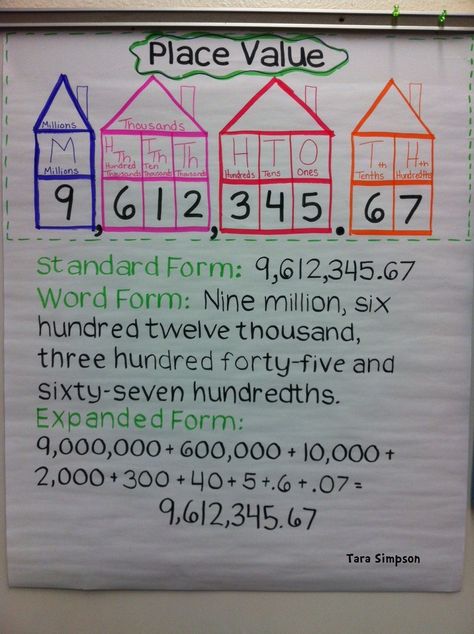 Place Value
Millions Thousands
M H Th T Th Th H T O T th H th
Millions Hundred Thousands Ten Thousands Thousands Hundreds Tens Ones Tenths Hundredths
9,612,345.67
Standard Form: 9,612,345.67
Word Form: Nine million, six
hundred twelve thousand,
three hundred forty-five and
sixty-seven hundredths.
Expanded Form:
9,000,000 + 600,000 + 10,000 +
2,000 + 300 + 40 + 5 + .6 + .07 =
9,612,345.67
Tara Simpson